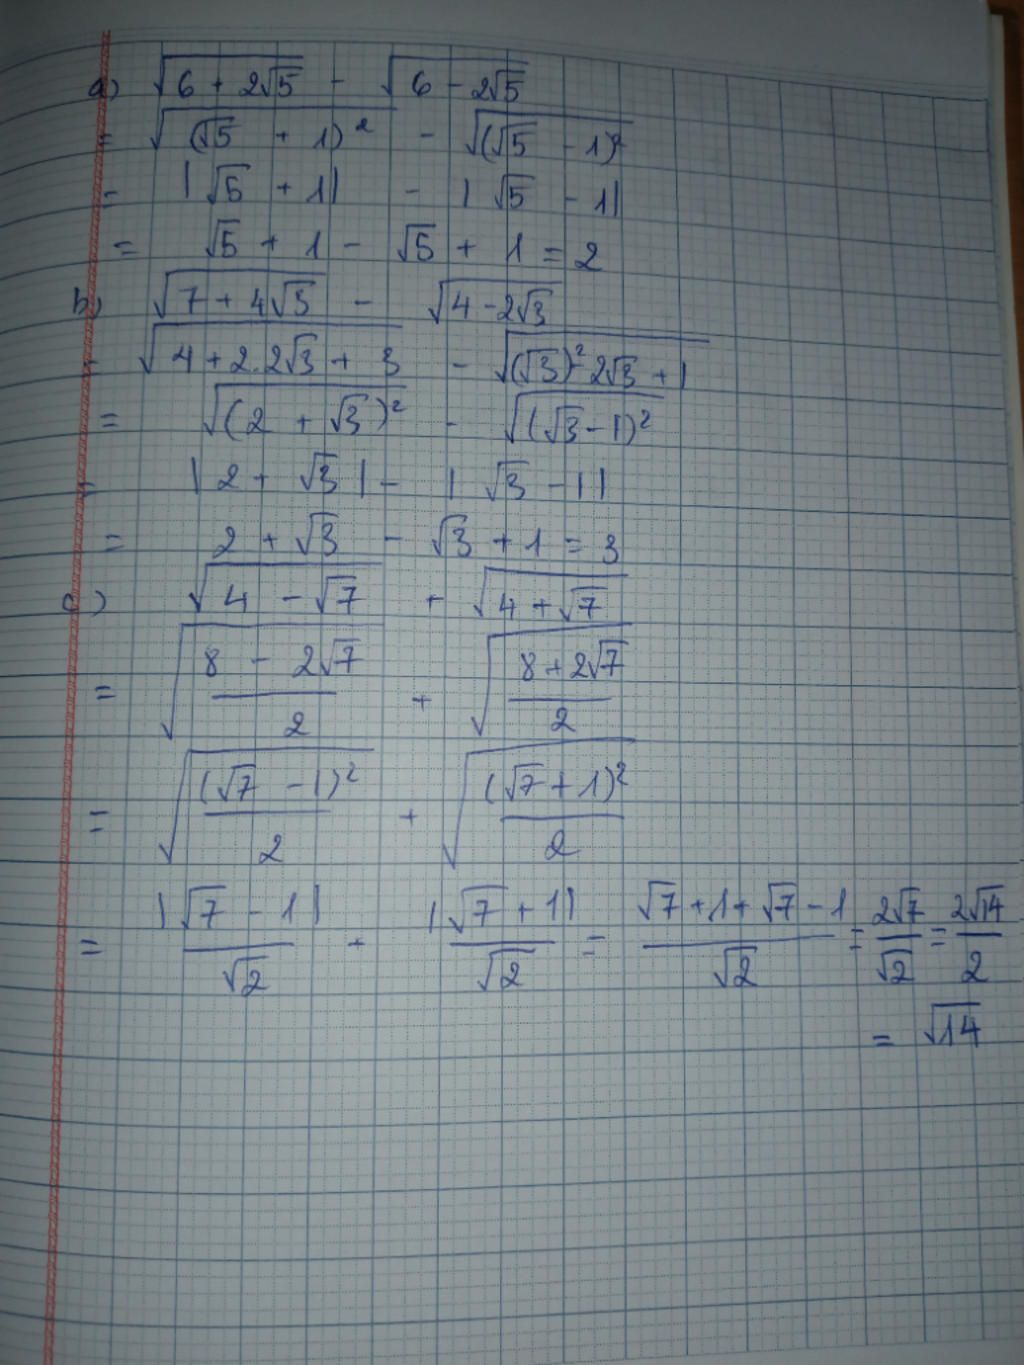 a) √(6 + 2√5) - √(6 - 2√5)
= √((√5 + 1)²) - √((√5 - 1)²)
= |√5 + 1| - |√5 - 1|
= √5 + 1 - √5 + 1 = 2
b) √(7 + 4√3) - √(4 - 2√3)
= √(4 + 2.2√3 + 3) - √((√3)² 2√3 + 1)
= √((2 + √3)²) - √((√3 - 1)²)
= |2 + √3| - |√3 - 1|
= 2 + √3 - √3 + 1 = 3
c) √(4 - √7) + √(4 + √7)
= √((8 - 2√7)/2) + √((8 + 2√7)/2)
= √((√7 - 1)²/2) + √((√7 + 1)²/2)
= |√7 - 1|/√2 + |√7 + 1|/√2 = (√7 + 1 + √7 - 1)/√2 = 2√7/√2 = 2√14/2
= √14